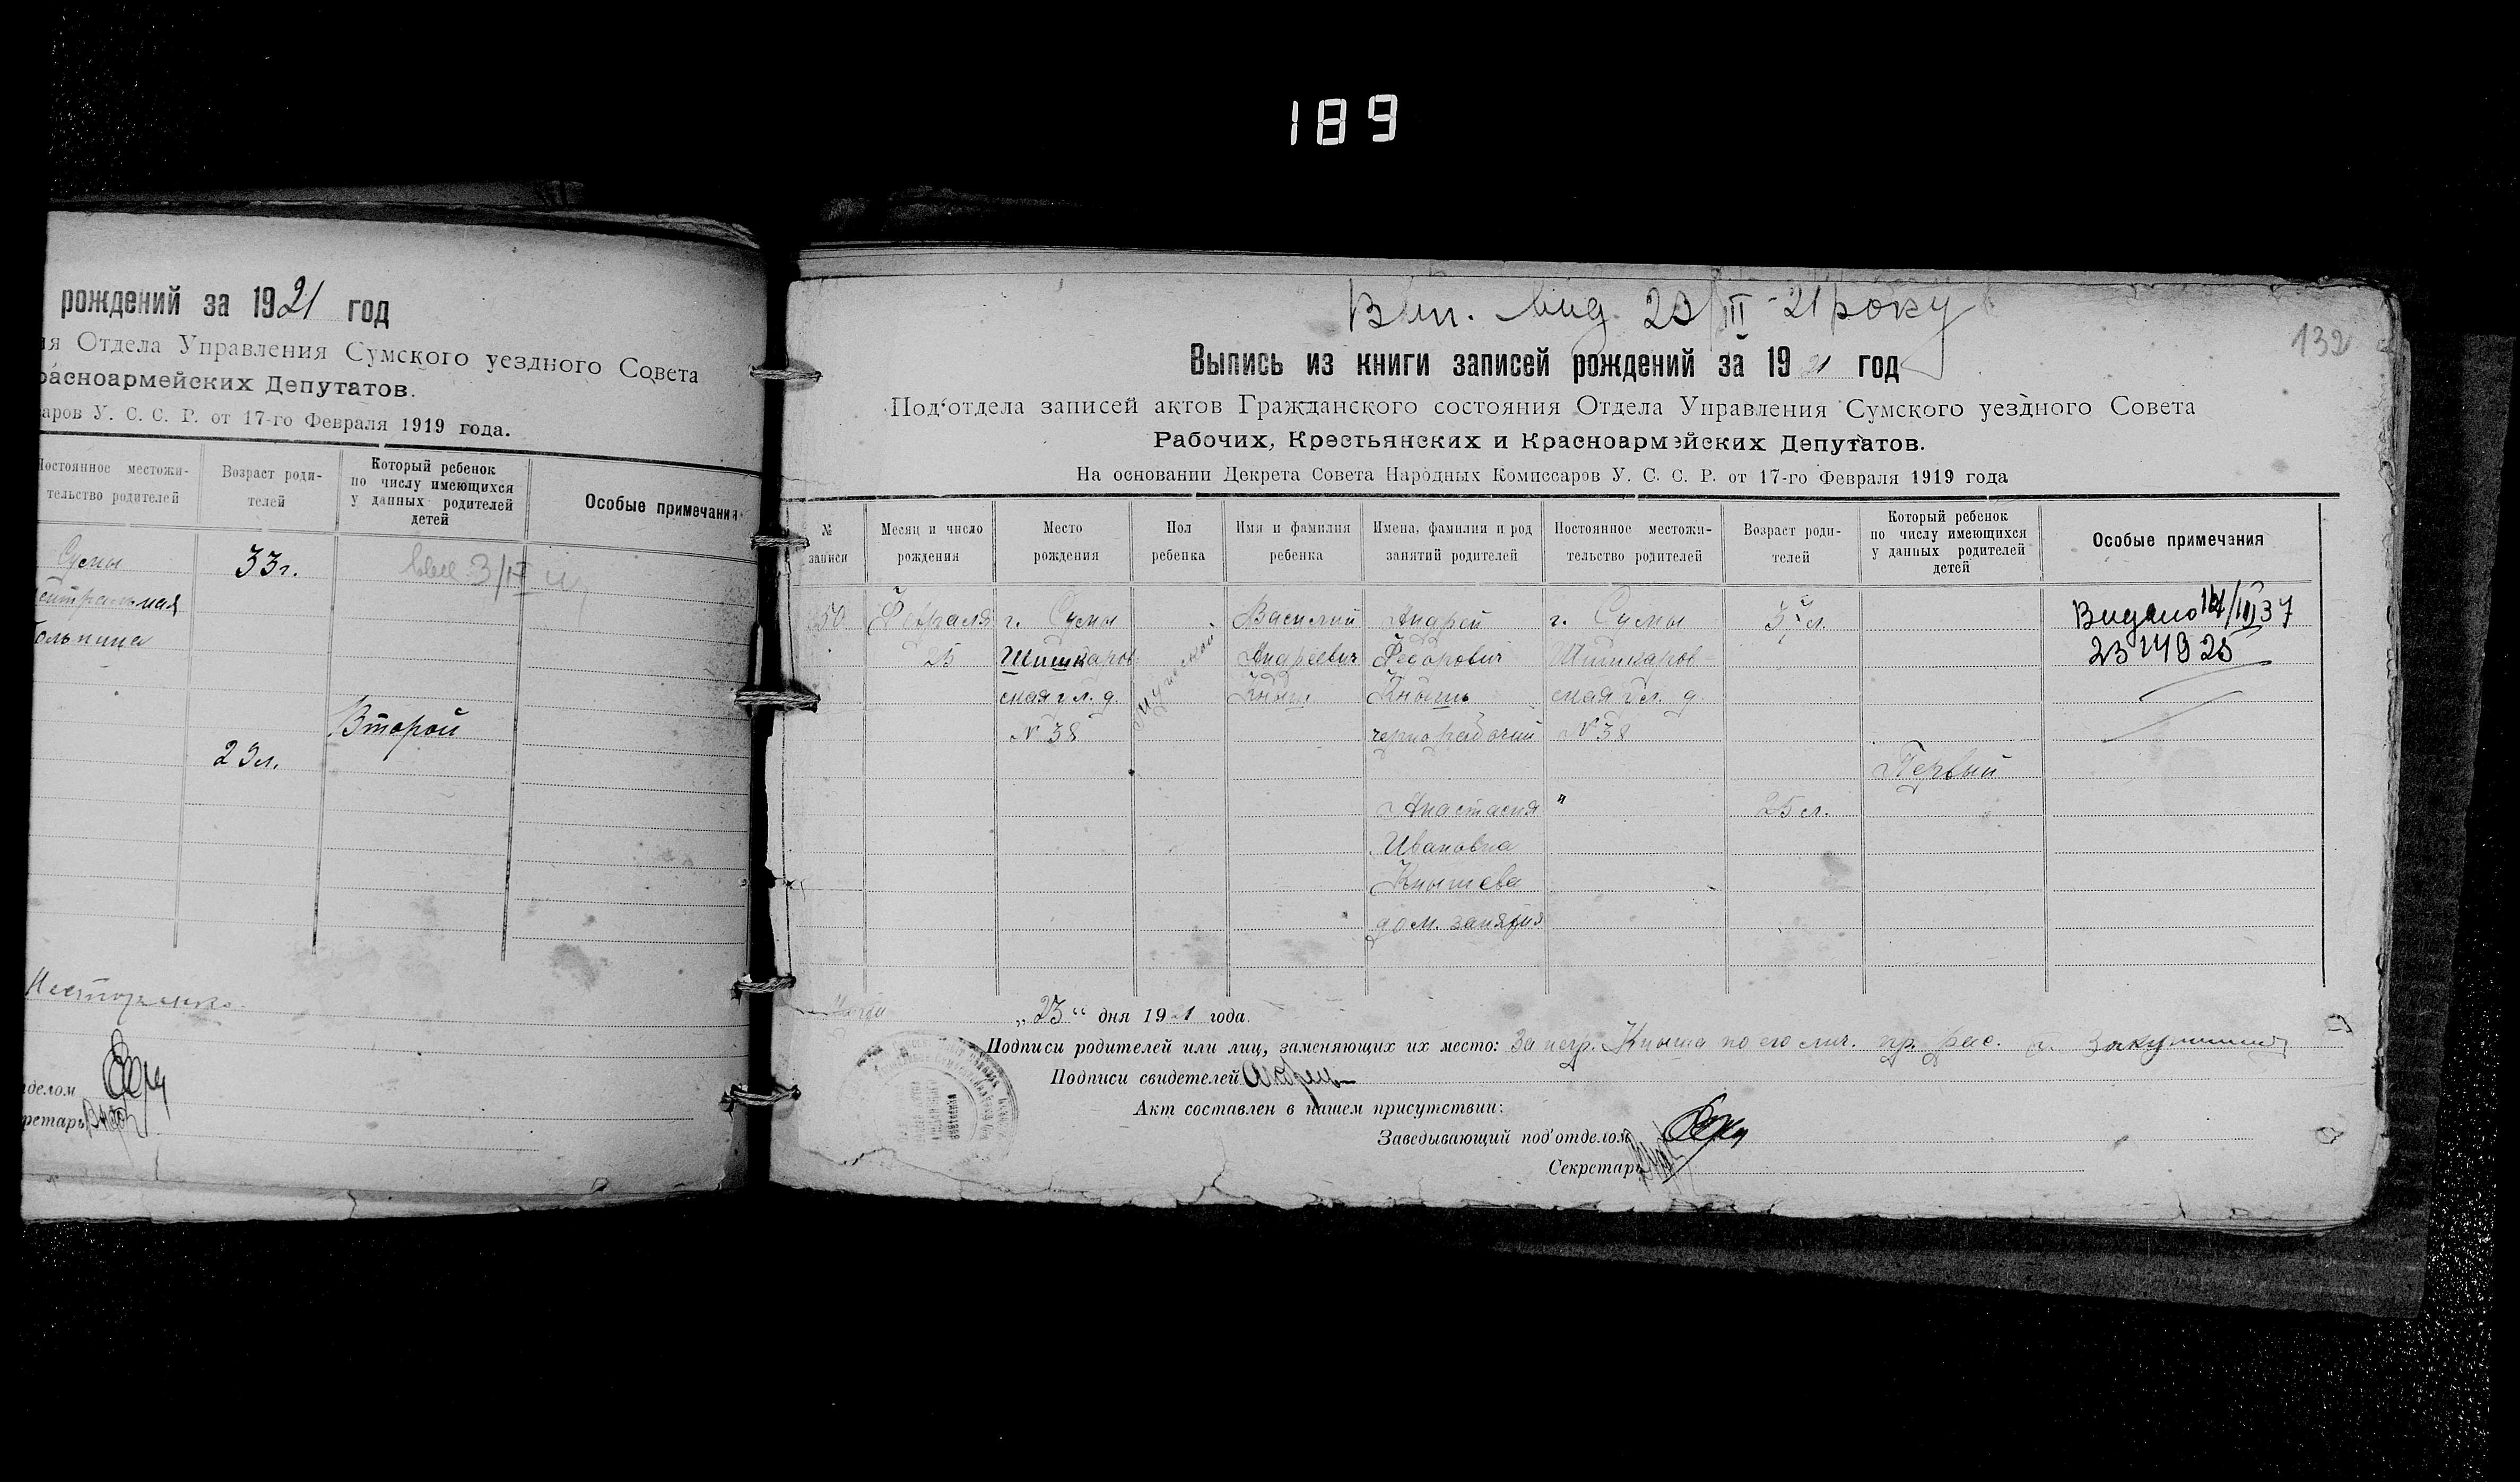 189
рождений за 1921 год
ия Отдела Управления Сумского уездного Совета
расноармейских Депутатов.
саров У. С. С. Р. от 17-го Февраля 1919 года.
Постоянное местожи-
тельство родителей
Возраст роди-
телей
Который ребенок
по числу имеющихся
у данных родителей
детей
Особые примечания
Сумы
33г.
3/IV
ентральная
больница
Второй
29л.
Нестеренко
делом
ретарь
132
Вип. вид. 23/III-21 року
Выпись из книги записей рождений за 1921 год
Под'отдела записей актов Гражданского состояния Отдела Управления Сумского уездного Совета
Рабочих, Крестьянских и Красноармэйских Депутатов.
На основании Декрета Совета Народных Комиссаров У. С. С. Р. от 17-го Февраля 1919 года
№
записи
Месяц и число
рождения
Место
рождения
Пол
ребенка
Имя и фамилия
ребенка
Имена, фамилии и род
занятий родителей
Постоянное местожи-
тельство родителей
Возраст роди-
телей
Который ребенок
по числу имеющихся
у данных родителей
детей
Особые примечания
50
Февраля
25
г. Сумы
Шишкаров-
ская ул. д.
№ 38
мужской
Василий
Андреевич
Кныш
Андрей
Федорович
Кнышь
чернорабочий
г. Сумы
Шишкаров-
ская ул. д.
№ 38
Первый
Видано 14/III 37
Анастасия
Ивановна
Кнышева
дом. занятия
"
25 л.
„23“ дня 1921 года.
Подписи родителей или лиц, заменяющих их место: За негр. Кныша по его лич. пр. рас.
Подписи свидетелей
Акт составлен в нашем присутствии:
Заведывающий под'отделом
Секретарь